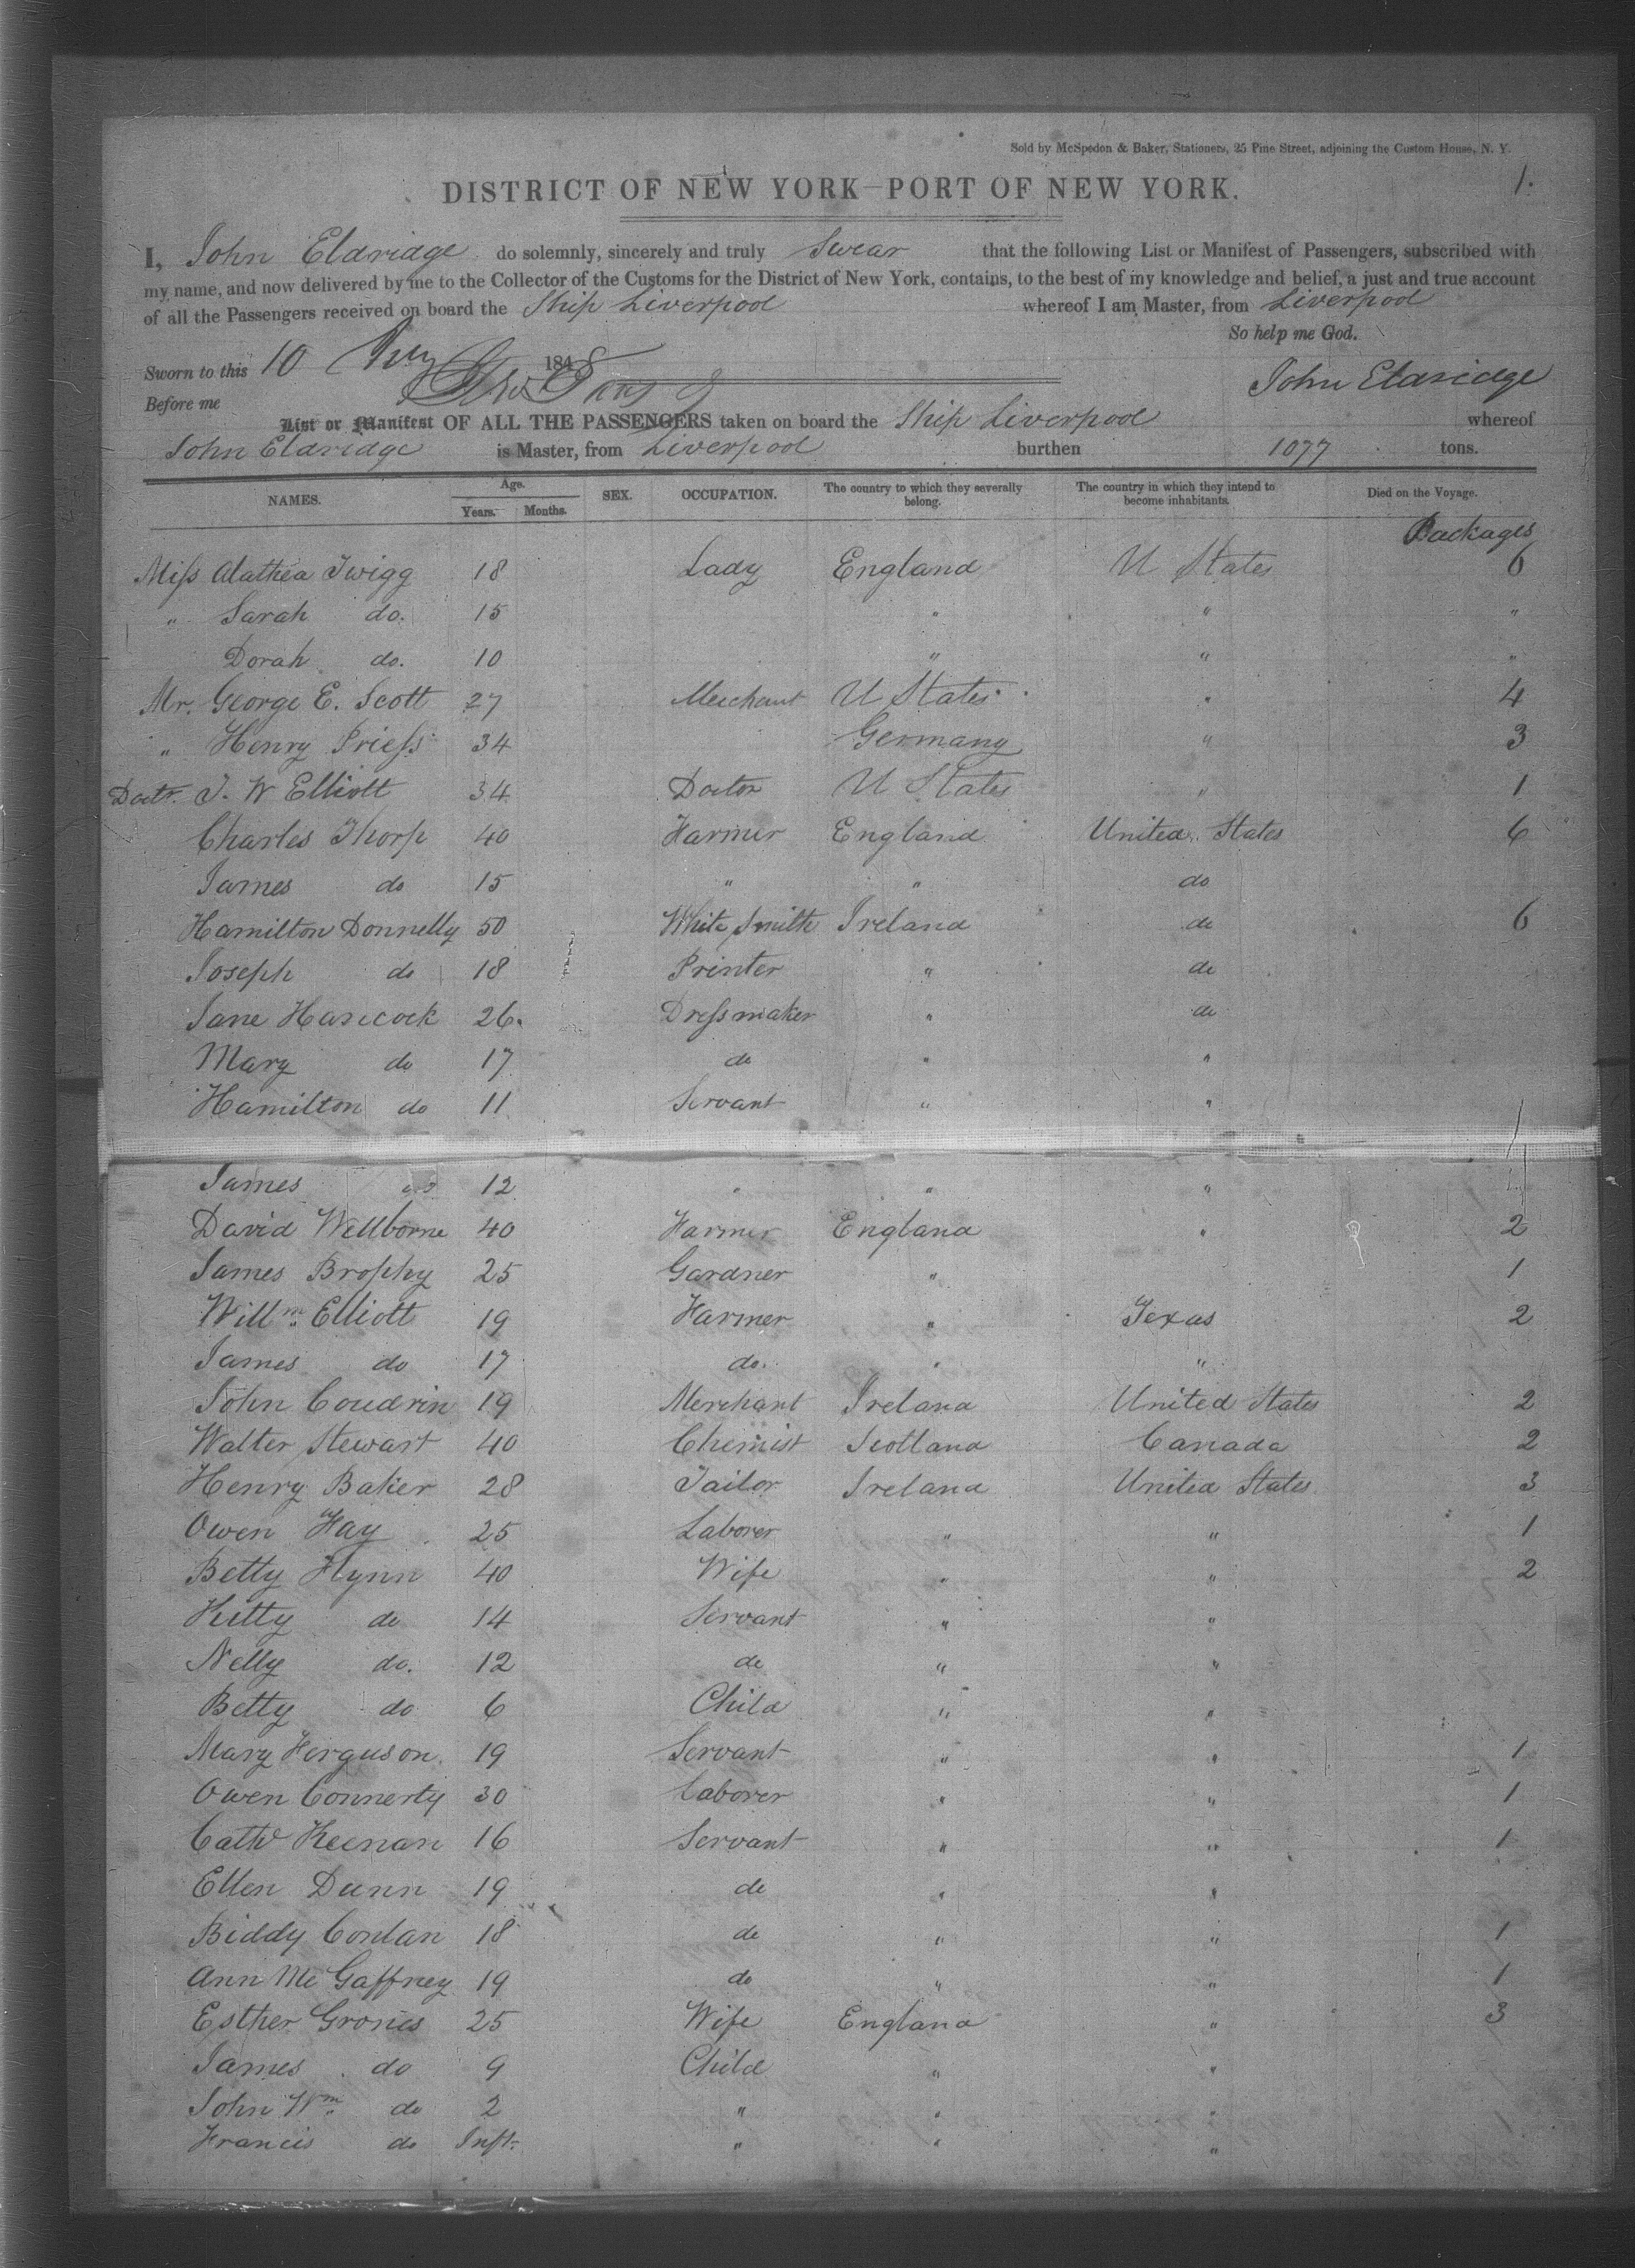 Sold by McSpedon & Baker, Stationers, 25 Pine Street, adjoining the Custom House, N. Y.
1.
DISTRICT OF NEW YORK—PORT OF NEW YORK.
I, John Eldridge do solemnly, sincerely and truly Swear that the following List or Manifest of Passengers, subscribed with
my name, and now delivered by me to the Collector of the Customs for the District of New York, contains, to the best of my knowledge and belief, a just and true account
of all the Passengers received on board the Ship Liverpool whereof I am Master, from Liverpool
So help me God.
Sworn to this 10 1848
John Eldridge
Before me
List or Manifest OF ALL THE PASSENGERS taken on board the Ship Liverpool whereof
John Eldridge is Master, from Liverpool burthen 1077 tons.
NAMES. Age. Years. Months. SEX. OCCUPATION. The country to which they severally belong. The country in which they intend to become inhabitants. Died on the Voyage.
Packages
Miss Alathea Twigg 18 Lady England U States 6
" Sarah do. 15 " " "
Dorah do. 10 " " "
Mr. George E. Scott 27 Merchant U States " 4
" Henry Priess 34 Germany " 3
Doctr. J. W Elliott 34 Doctor U States " 1
Charles Thorp 40 Farmer England United States 6
James do 15 " " do
Hamilton Donnelly 50 White Smith Ireland do 6
Joseph do 18 Printer " do
Jane Hancock 26 Dressmaker " do
Mary do 17 do " "
Hamilton do 11 Servant " "
James do 12 " " "
David Wellborne 40 Farmer England " 2
James Brophy 25 Gardner " 1
Willm. Elliott 19 Farmer " Texas 2
James do 17 do. " "
John Coudrin 19 Merchant Ireland United States 2
Walter Stewart 40 Chemist Scotland Canada 2
Henry Baker 28 Tailor Ireland United States 3
Owen Hay 25 Laborer " " 1
Betty Flynn 40 Wife " " 2
Kitty do 14 Servant " "
Nelly do. 12 do " "
Betty do 6 Child " "
Mary Ferguson 19 Servant " " 1
Owen Connerty 30 Laborer " " 1
Cathe Keenan 16 Servant " " 1
Ellen Dunn 19 do " "
Biddy Conlan 18 do " " 1
Ann Mc Gaffney 19 do " " 1
Esther Grones 25 Wife England " 3
James do 9 Child " "
John Wm. do 2 " " "
Francis do Inft. " " "